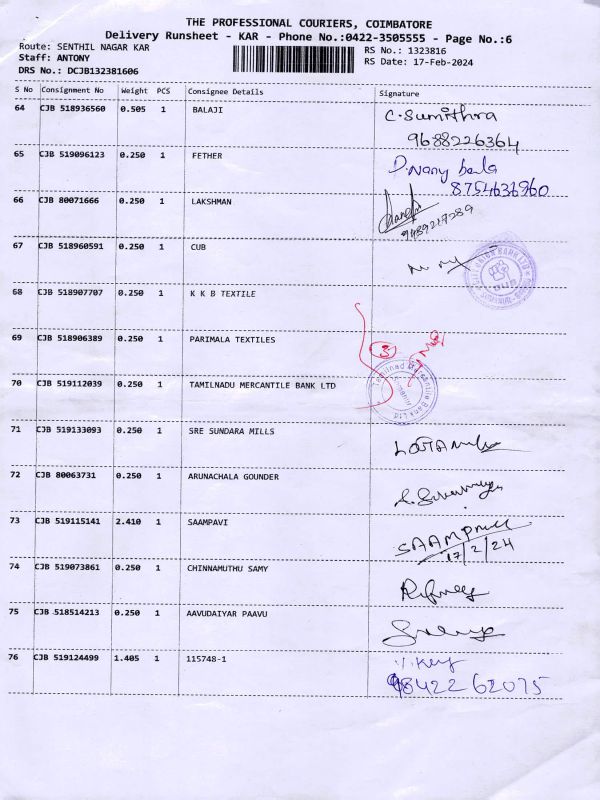 THE PROFESSIONAL COURIERS, COIMBATORE
Delivery Runsheet - KAR - Phone No.:0422-3505555 - Page No.:6
Route: SENTHIL NAGAR KAR
RS No.: 1323816
Staff: ANTONY
RS Date: 17-Feb-2024
DRS No.: DCJB132381606
S No Consignment No Weight PCS Consignee Details Signature
64 CJB 518936560 0.505 1 BALAJI C.Sumithra
9688226364
65 CJB 519096123 0.250 1 FETHER
8754636960
66 CJB 80071666 0.250 1 LAKSHMAN
9489217289
67 CJB 518960591 0.250 1 CUB
68 CJB 518907707 0.250 1 K K B TEXTILE
69 CJB 518906389 0.250 1 PARIMALA TEXTILES 3
70 CJB 519112039 0.250 1 TAMILNADU MERCANTILE BANK LTD Tamilnad Mercantile Bank Ltd
71 CJB 519133093 0.250 1 SRE SUNDARA MILLS
72 CJB 80063731 0.250 1 ARUNACHALA GOUNDER
73 CJB 519115141 2.410 1 SAAMPAVI
17/2/24
74 CJB 519073861 0.250 1 CHINNAMUTHU SAMY
75 CJB 518514213 0.250 1 AAVUDAIYAR PAAVU
76 CJB 519124499 1.405 1 115748-1
9842262075